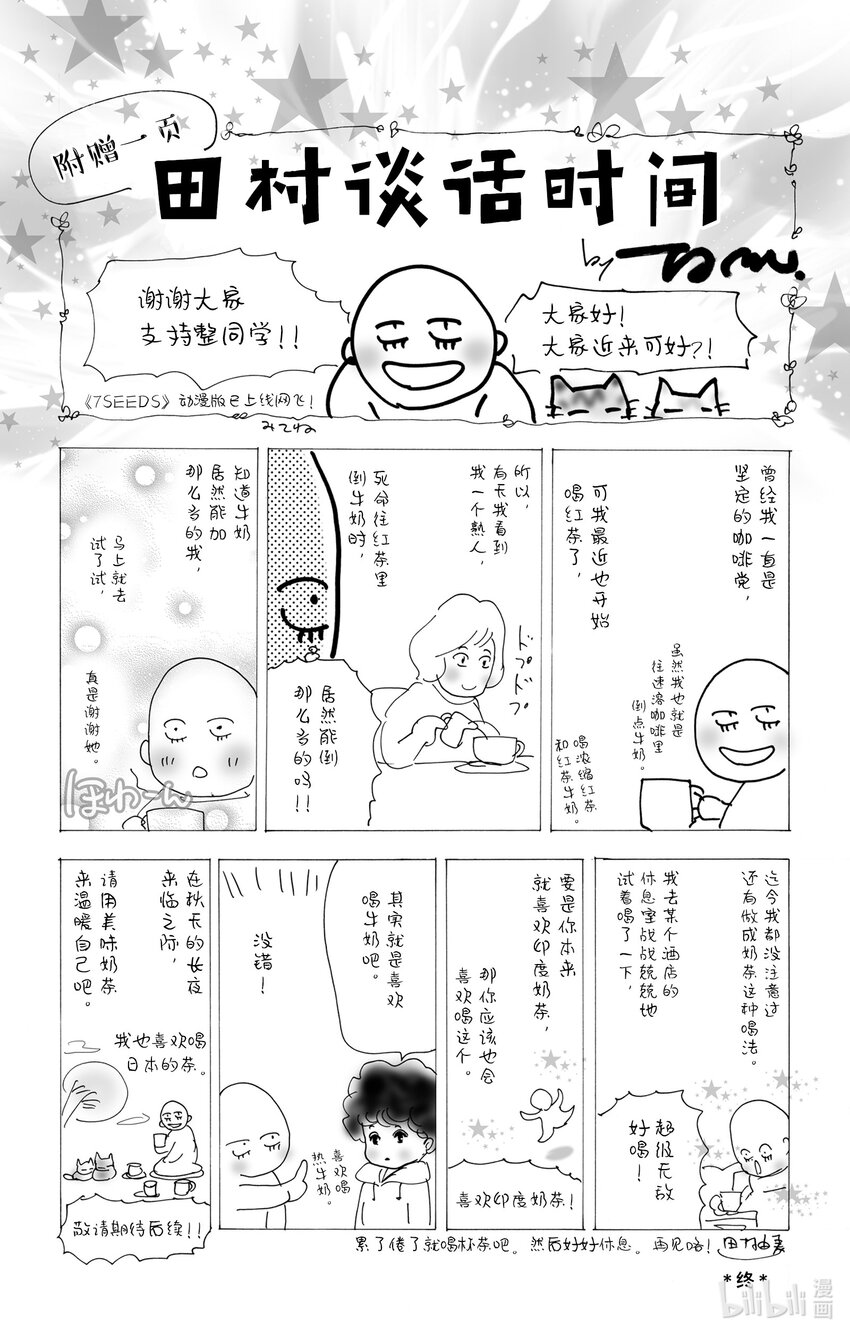 附赠一页
田村谈话时间
by
大家好！
大家近来可好？！
谢谢大家
支持整同学！！
《7SEEDS》动漫版已上线网飞！
みてね
曾经我一直是
坚定的咖啡党，
可我最近也开始
喝红茶了，
虽然我也就是
往速溶咖啡里
倒点牛奶。
喝浓缩红茶
和红茶牛奶。
所以，
有天我看到
我一个熟人，
死命往红茶里
倒牛奶时，
ドプドプ
居然能倒
那么多的吗！！
知道牛奶
居然能加
那么多的我，
马上就去
试了试，
真是谢谢她。
ほわーん
迄今我都没注意过
还有做成奶茶这种喝法。
我去某个酒店的
休息室战战兢兢地
试着喝了一下，
超级无敌
好喝！
要是你本来
就喜欢印度奶茶，
那你应该也会
喜欢喝这个。
喜欢印度奶茶！
其实就是喜欢
喝牛奶吧。
没错！
喜欢喝
热牛奶。
在秋天的长夜
来临之际，
请用美味奶茶
来温暖自己吧。
我也喜欢喝
日本的茶。
敬请期待后续！！
累了倦了就喝杯茶吧。然后好好休息。再见咯！
田村由美
*终*
bilibili
漫画